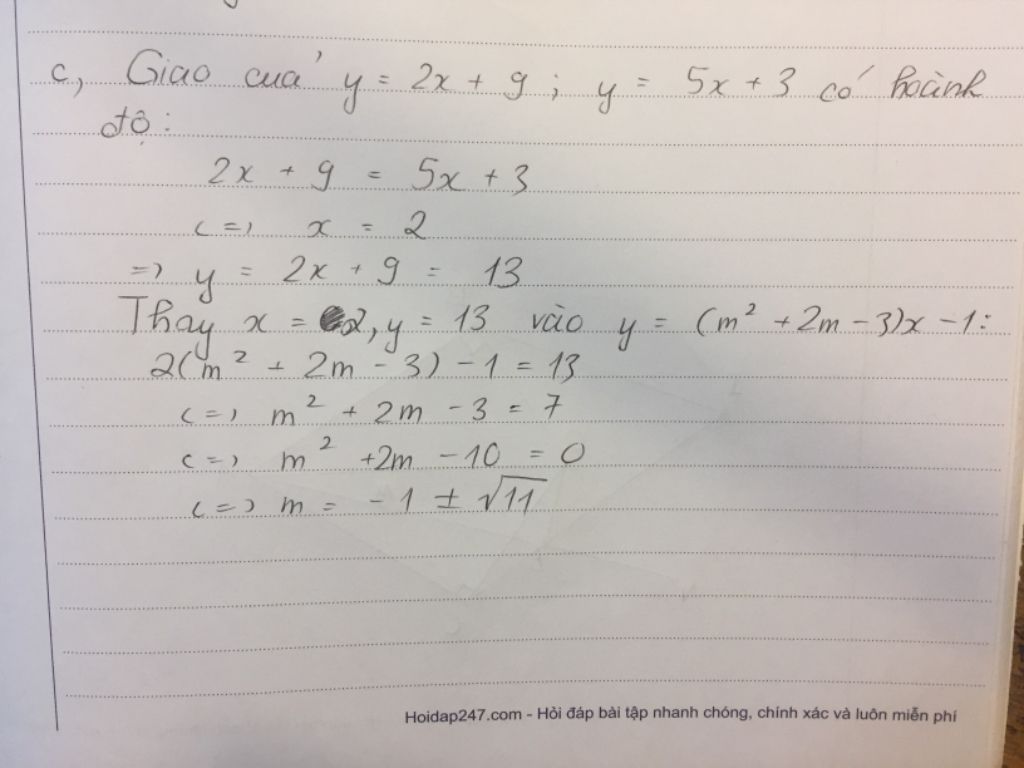 c, Giao của y = 2x + 9 ; y = 5x + 3 có hoành
độ :
2x + 9 = 5x + 3
(=) x = 2
=) y = 2x + 9 = 13
Thay x = 2, y = 13 vào y = (m² + 2m - 3)x - 1 :
2(m² + 2m - 3) - 1 = 13
(=) m² + 2m - 3 = 7
(=) m² + 2m - 10 = 0
(=) m = - 1 ± √11
Hoidap247.com - Hỏi đáp bài tập nhanh chóng, chính xác và luôn miễn phí